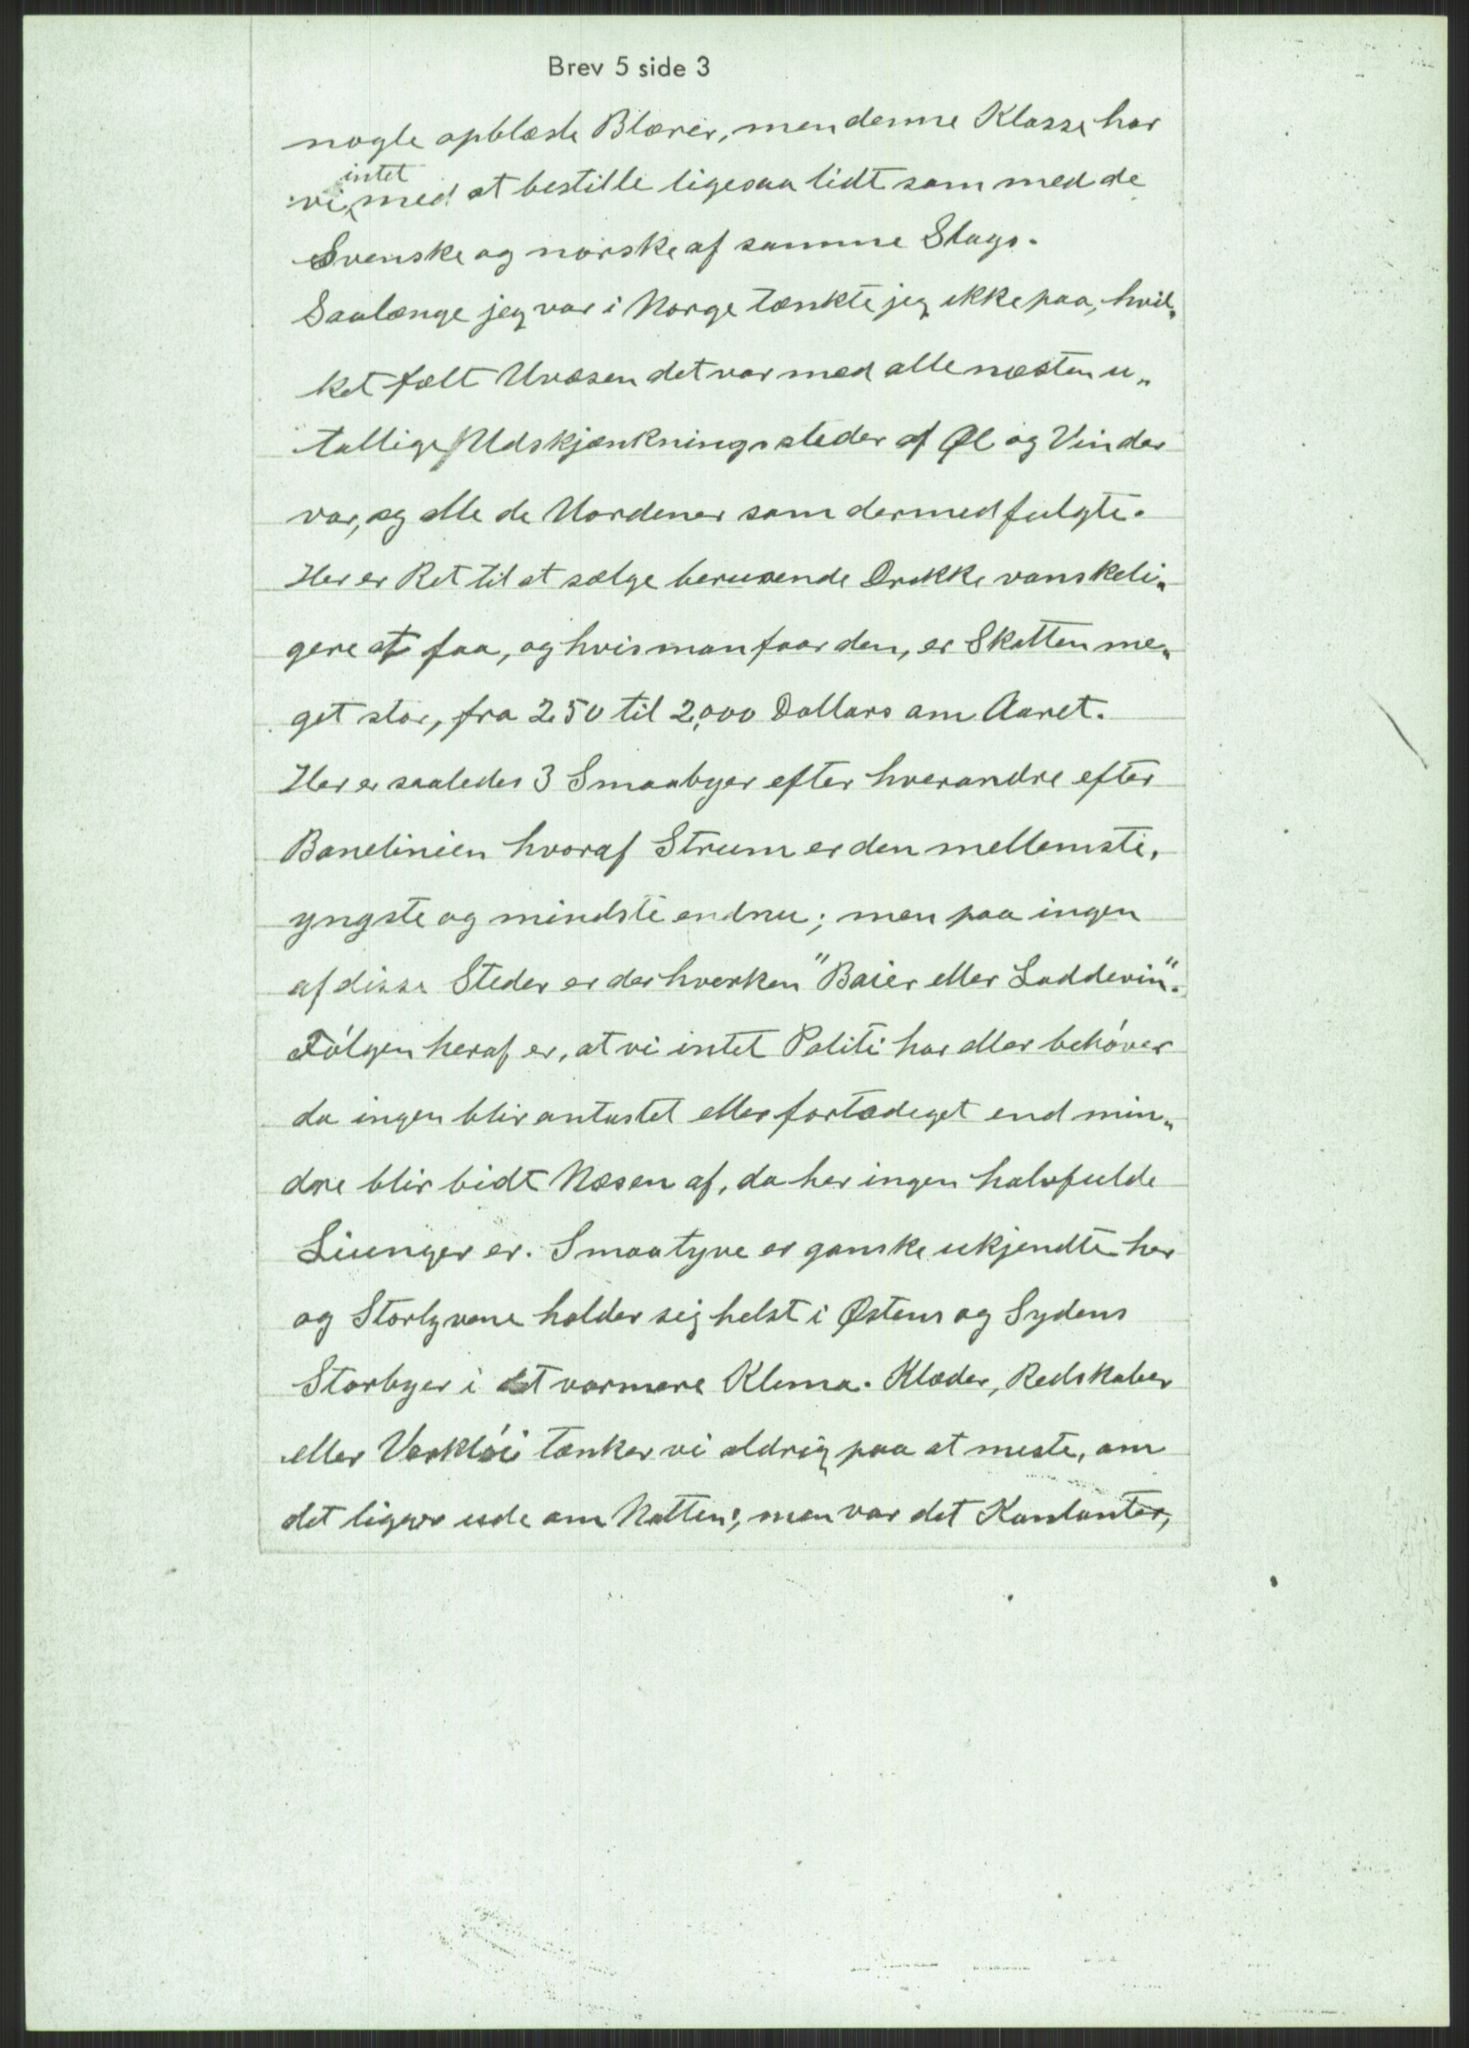 Brev 5 side 3
nogle opblæste Blærer, men denne Klasse har
intet
vi med at bestille ligesaa lidt som med de
Svenske og norske af samme Slags.
Saalænge jeg var i Norge tænkte jeg ikke paa, hvil„
ket fælt Uvæsen det var med alle næsten u„
tallige Udskjænkningssteder af Øl og Vin der
var, og alle de Uordener som dermed fulgte.
Her er Ret til at sælge berusende Drikke vanskeli„
gere at faa, og hvis man faar den, er Skatten me„
get stor, fra 250 til 2,000 Dollars om Aaret.
Her er saaledes 3 Smaabyer efter hverandre efter
Banelinien hvoraf Strum er den mellemste,
yngste og mindste endnu; men paa ingen
af disse Steder er der hverken "Baier eller Laddevin".
Følgen heraf er, at vi intet Politi har eller behøver
da ingen blir antastet eller fortædiget end min„
dre blir bidt Næsen af, da her ingen halvfulde
Slunger er. Smaatyve er ganske ukjendte her
og Stortyvene holder sig helst i Østens og Sydens
Storbyer i et varmere Klima. Klæder, Redskaber
eller Verktøi tænker vi aldrig paa at miste, om
det ligger ude om Natten; men var det Kontanter,